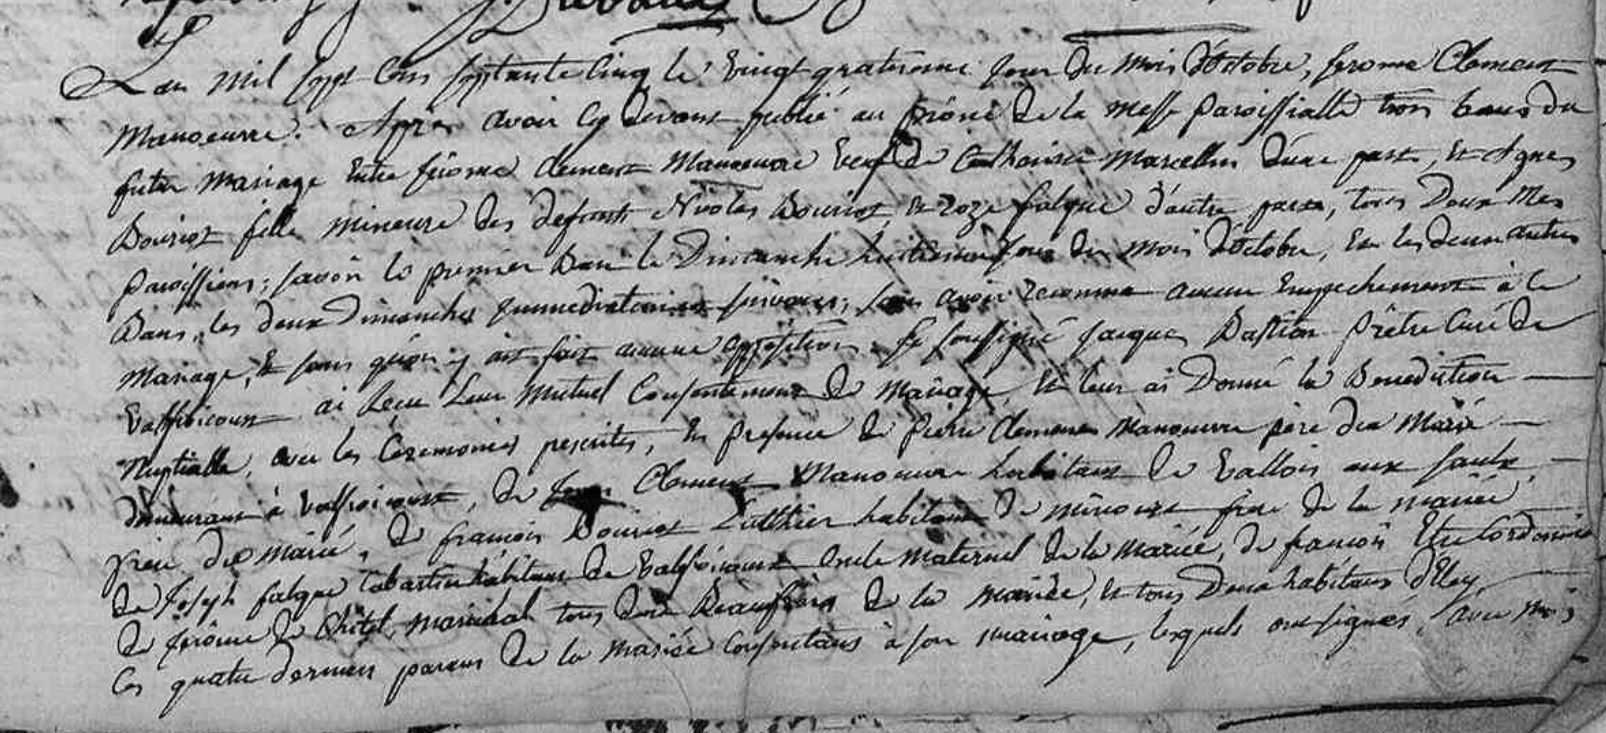 L'an mil sept Cens septante Cinq le vingt quatrieme jour du mois d'octobre, jerome Clement
Manoeuvre. Apres avoir cy devant publié au prône de la messe paroissialle trois bans du
futur mariage entre jérome Clement Manoeuvre veuf de Catherine Marcellin d'une part, et Agnes
Douriot fille mineure des defunts Nicolas Douriot et Roze falque d'autre part, tous Deux mes
paroissiens; savoir le premier Ban le Dimanche huitieme jour du mois d'octobre, et les deux autres
Bans, les deux Dimanches immediatement suivans; sans avoir reconnu aucun Empechement à ce
mariage, et sans qu'on y ait fait aucune opposition. Je soussigné jacque Bastien Prêtre Curé de
Valfroicourt ai Recu Leur Mutuel Consentement de mariage, et leur ai Donné la Benediction
Nuptialle, avec les Ceremonies prescrites, En presence de pierre Clement Manoeuvre père du Marié
demeurant à Valfroicourt, de Clement Manoeuvre habitant de Vallois aux saulx
frere du marié, de francois Douriot habitant de frere de la mariée,
de Joseph falque Cabartier habitant de Valfroicourt oncle maternel de la Mariée, de francois
de jérome Marechal tous deux Beaufreres de la mariée, et tous Deux habitans
Ces quatre derniers parens de la mariée Consentans à son mariage, lesquels ont signés avec moi